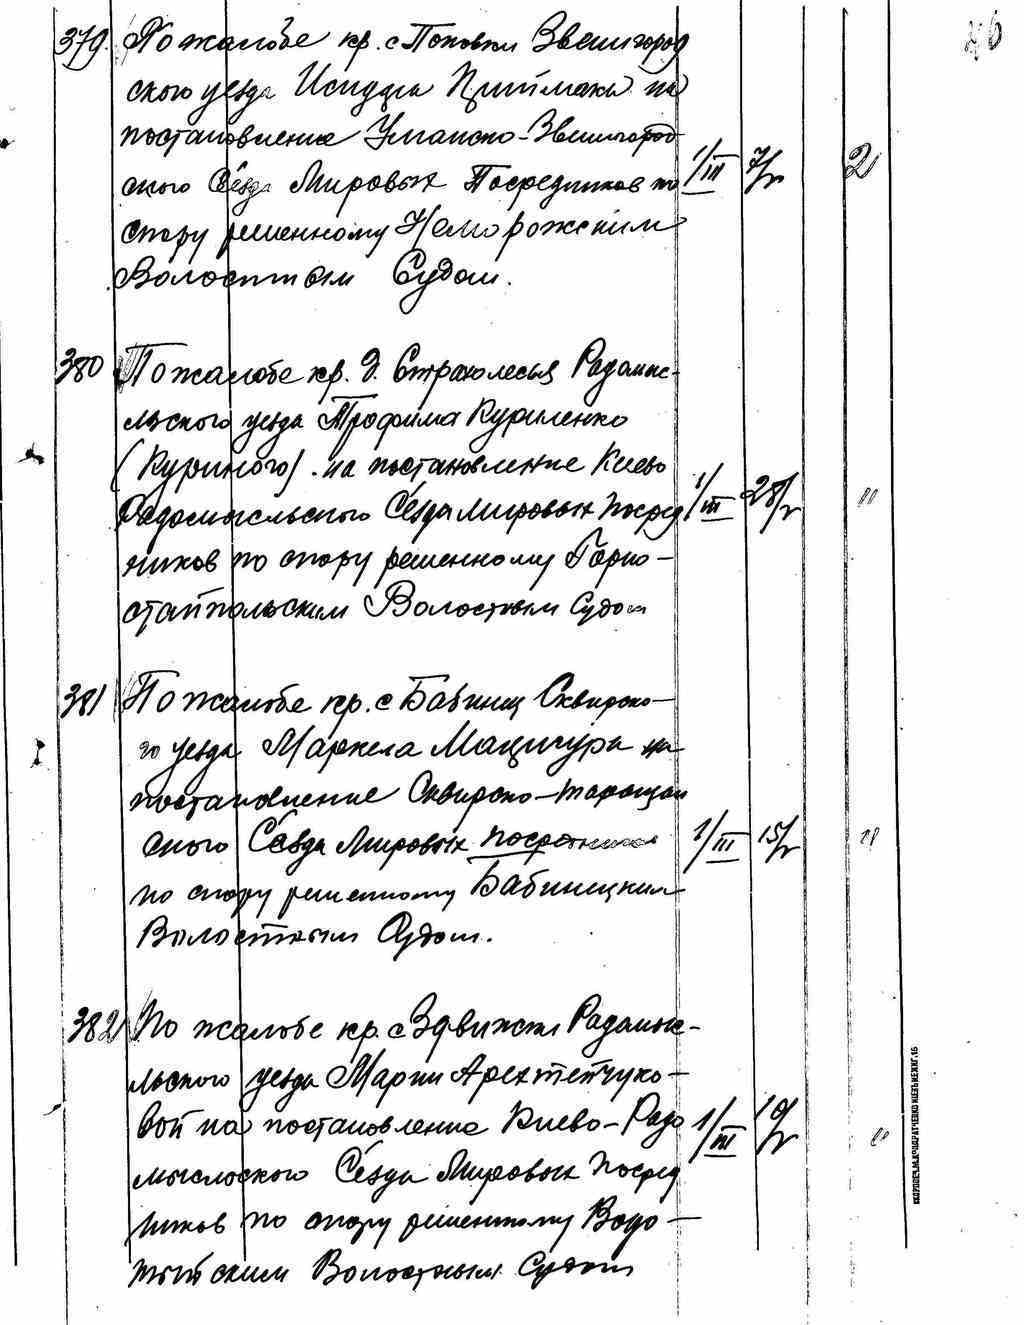 46
379. По жалобе кр. с Поповки Звенигород
ского уезда Исидора Притмака на
постановление Уманско-Звенигород
ского Сезда Мировых Посредников по
1/III 7/V 2
спору решенному Неморожским
Волостным Судом.
380 По жалобе кр. д. Страхолесья Радомыс-
льского уезда Трофима Куриленко
(Куриного). на постановление Киево
Радомысльского Сезда мировых Посред
1/III 28/V "
ников по спору решенному Горно-
стайпольским Волостным Судом
381 По жалобе кр. с Бабинец Сквирско-
го уезда Маркела Мацичура на
постановление Сквирско-таращан
ского Сезда Мировых посредников
1/III 15/V "
по спору решенному Бабинецким
Волостным Судом.
382 По жалобе кр. с Здвижки Радомыс-
льского уезда Марии Архтемчуко-
вой на постановление Киево-Радо
1/III 19/V "
мысльского Сезда Мировых Посред
ников по спору решенному Водо-
тыйским Волостным Судом